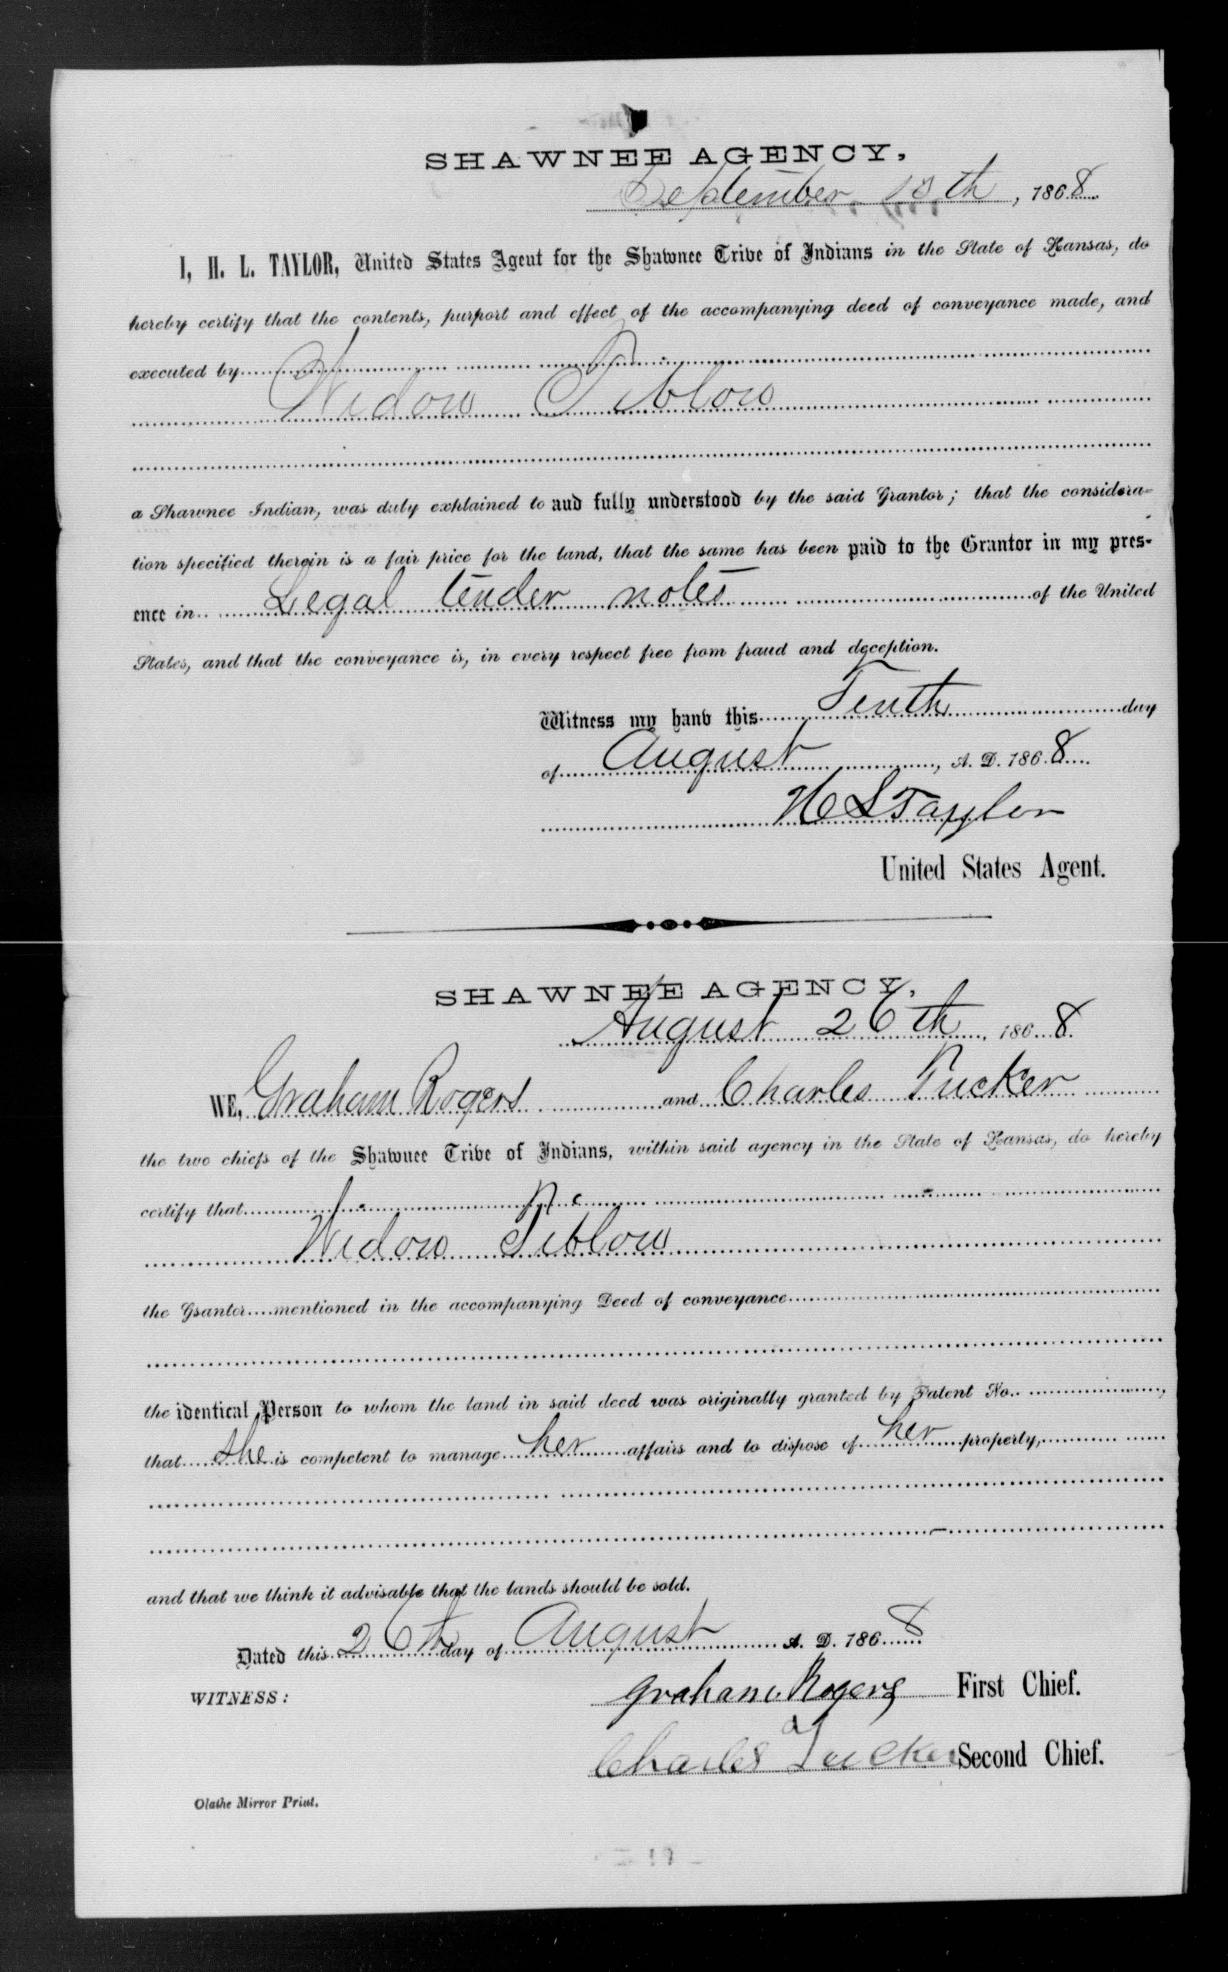 SHAWNEE AGENCY,
September 10th, 1868.
I, H. L. TAYLOR, United States Agent for the Shawnee Tribe of Indians in the State of Kansas, do
hereby certify that the contents, purport and effect of the accompanying deed of conveyance made, and
executed by
Widow Tiblow
a Shawnee Indian, was duly explained to and fully understood by the said Grantor; that the considera-
tion specified therein is a fair price for the land, that the same has been paid to the Grantor in my pres-
ence in Legal tender notes of the United
States, and that the conveyance is, in every respect free from fraud and deception.
Witness my hand this Tenth day
of August, A. D. 1868
H L Taylor
United States Agent.
SHAWNEE AGENCY,
August 26th, 1868.
WE, Graham Rogers and Charles Tucker
the two chiefs of the Shawnee Tribe of Indians, within said agency in the State of Kansas, do hereby
certify that
Widow Tiblow
the Grantor mentioned in the accompanying Deed of conveyance
the identical Person to whom the land in said deed was originally granted by Patent No.,
that she is competent to manage her affairs and to dispose of her property,
and that we think it advisable that the lands should be sold.
Dated this 26th day of August A. D. 1868
WITNESS:
Graham Rogers First Chief.
Charles Tucker Second Chief.
Olathe Mirror Print.